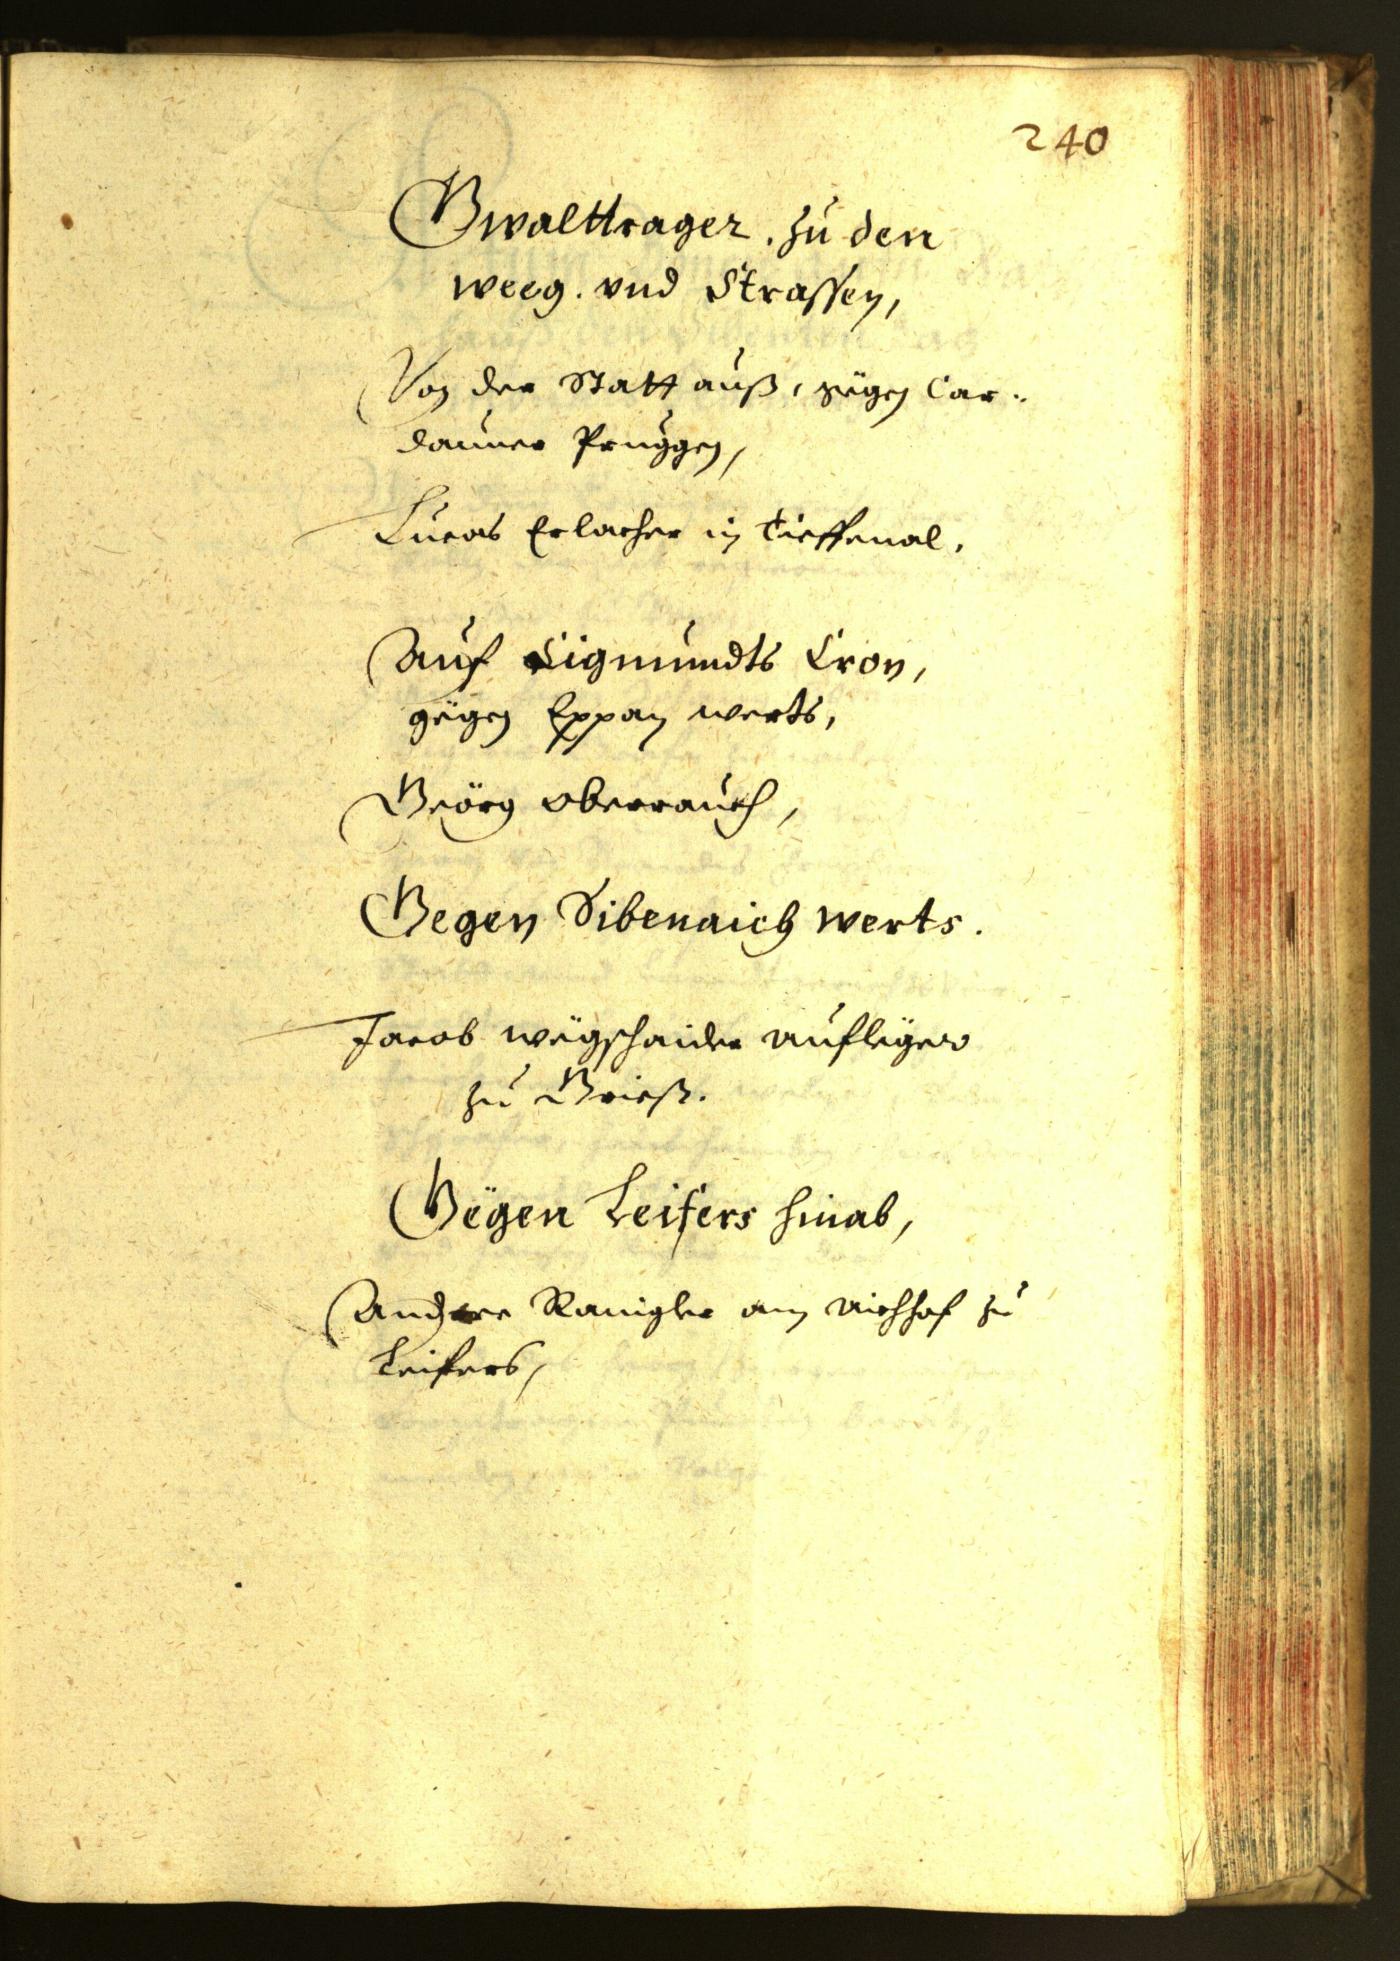 240
Gwalttrager. zu den
weeg. vnd Strassen,
Von der Statt auß, gëgen Car-
dauner Pruggen,
Lucas Erlacher in Tieffenal.
Auf Sigmundts Cron,
gëgen Eppan werts,
Geörg Oberrauch,
Gegen Sibenaich werts.
Jacob wëgschaider Auflëger
zu Grieß.
Gëgen Leifers hinab,
Andree Ranigler am Aichhof zu
Leifers,